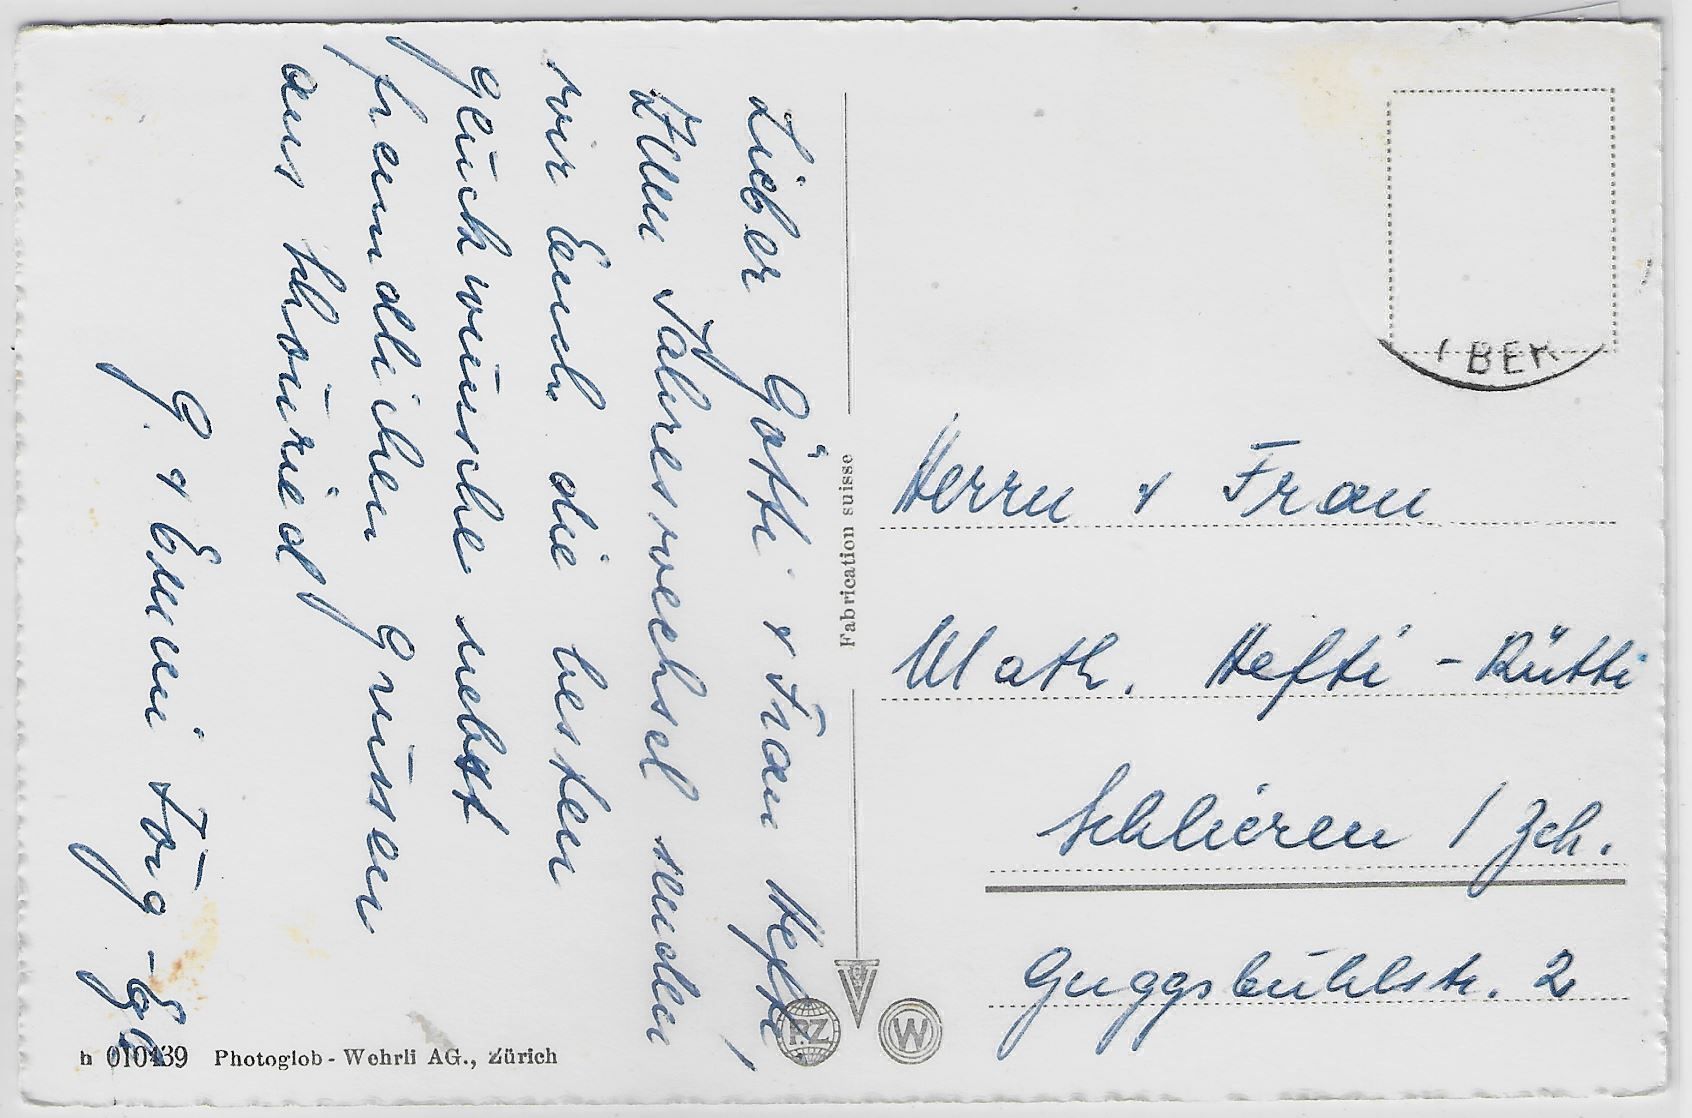 Lieber Götti & Frau Hefti!
Zum Jahreswechsel senden
wir Euch die besten
Glückwünsche nebst
freundlichen Grüssen
aus
G. & Emmi
Fabrication suisse
PZ
W
BER
Herrn & Frau
Math. Hefti - Rütti
Schlieren / Zch.
Guggsbühlstr. 2
h 010439 Photoglob - Wehrli AG., Zürich